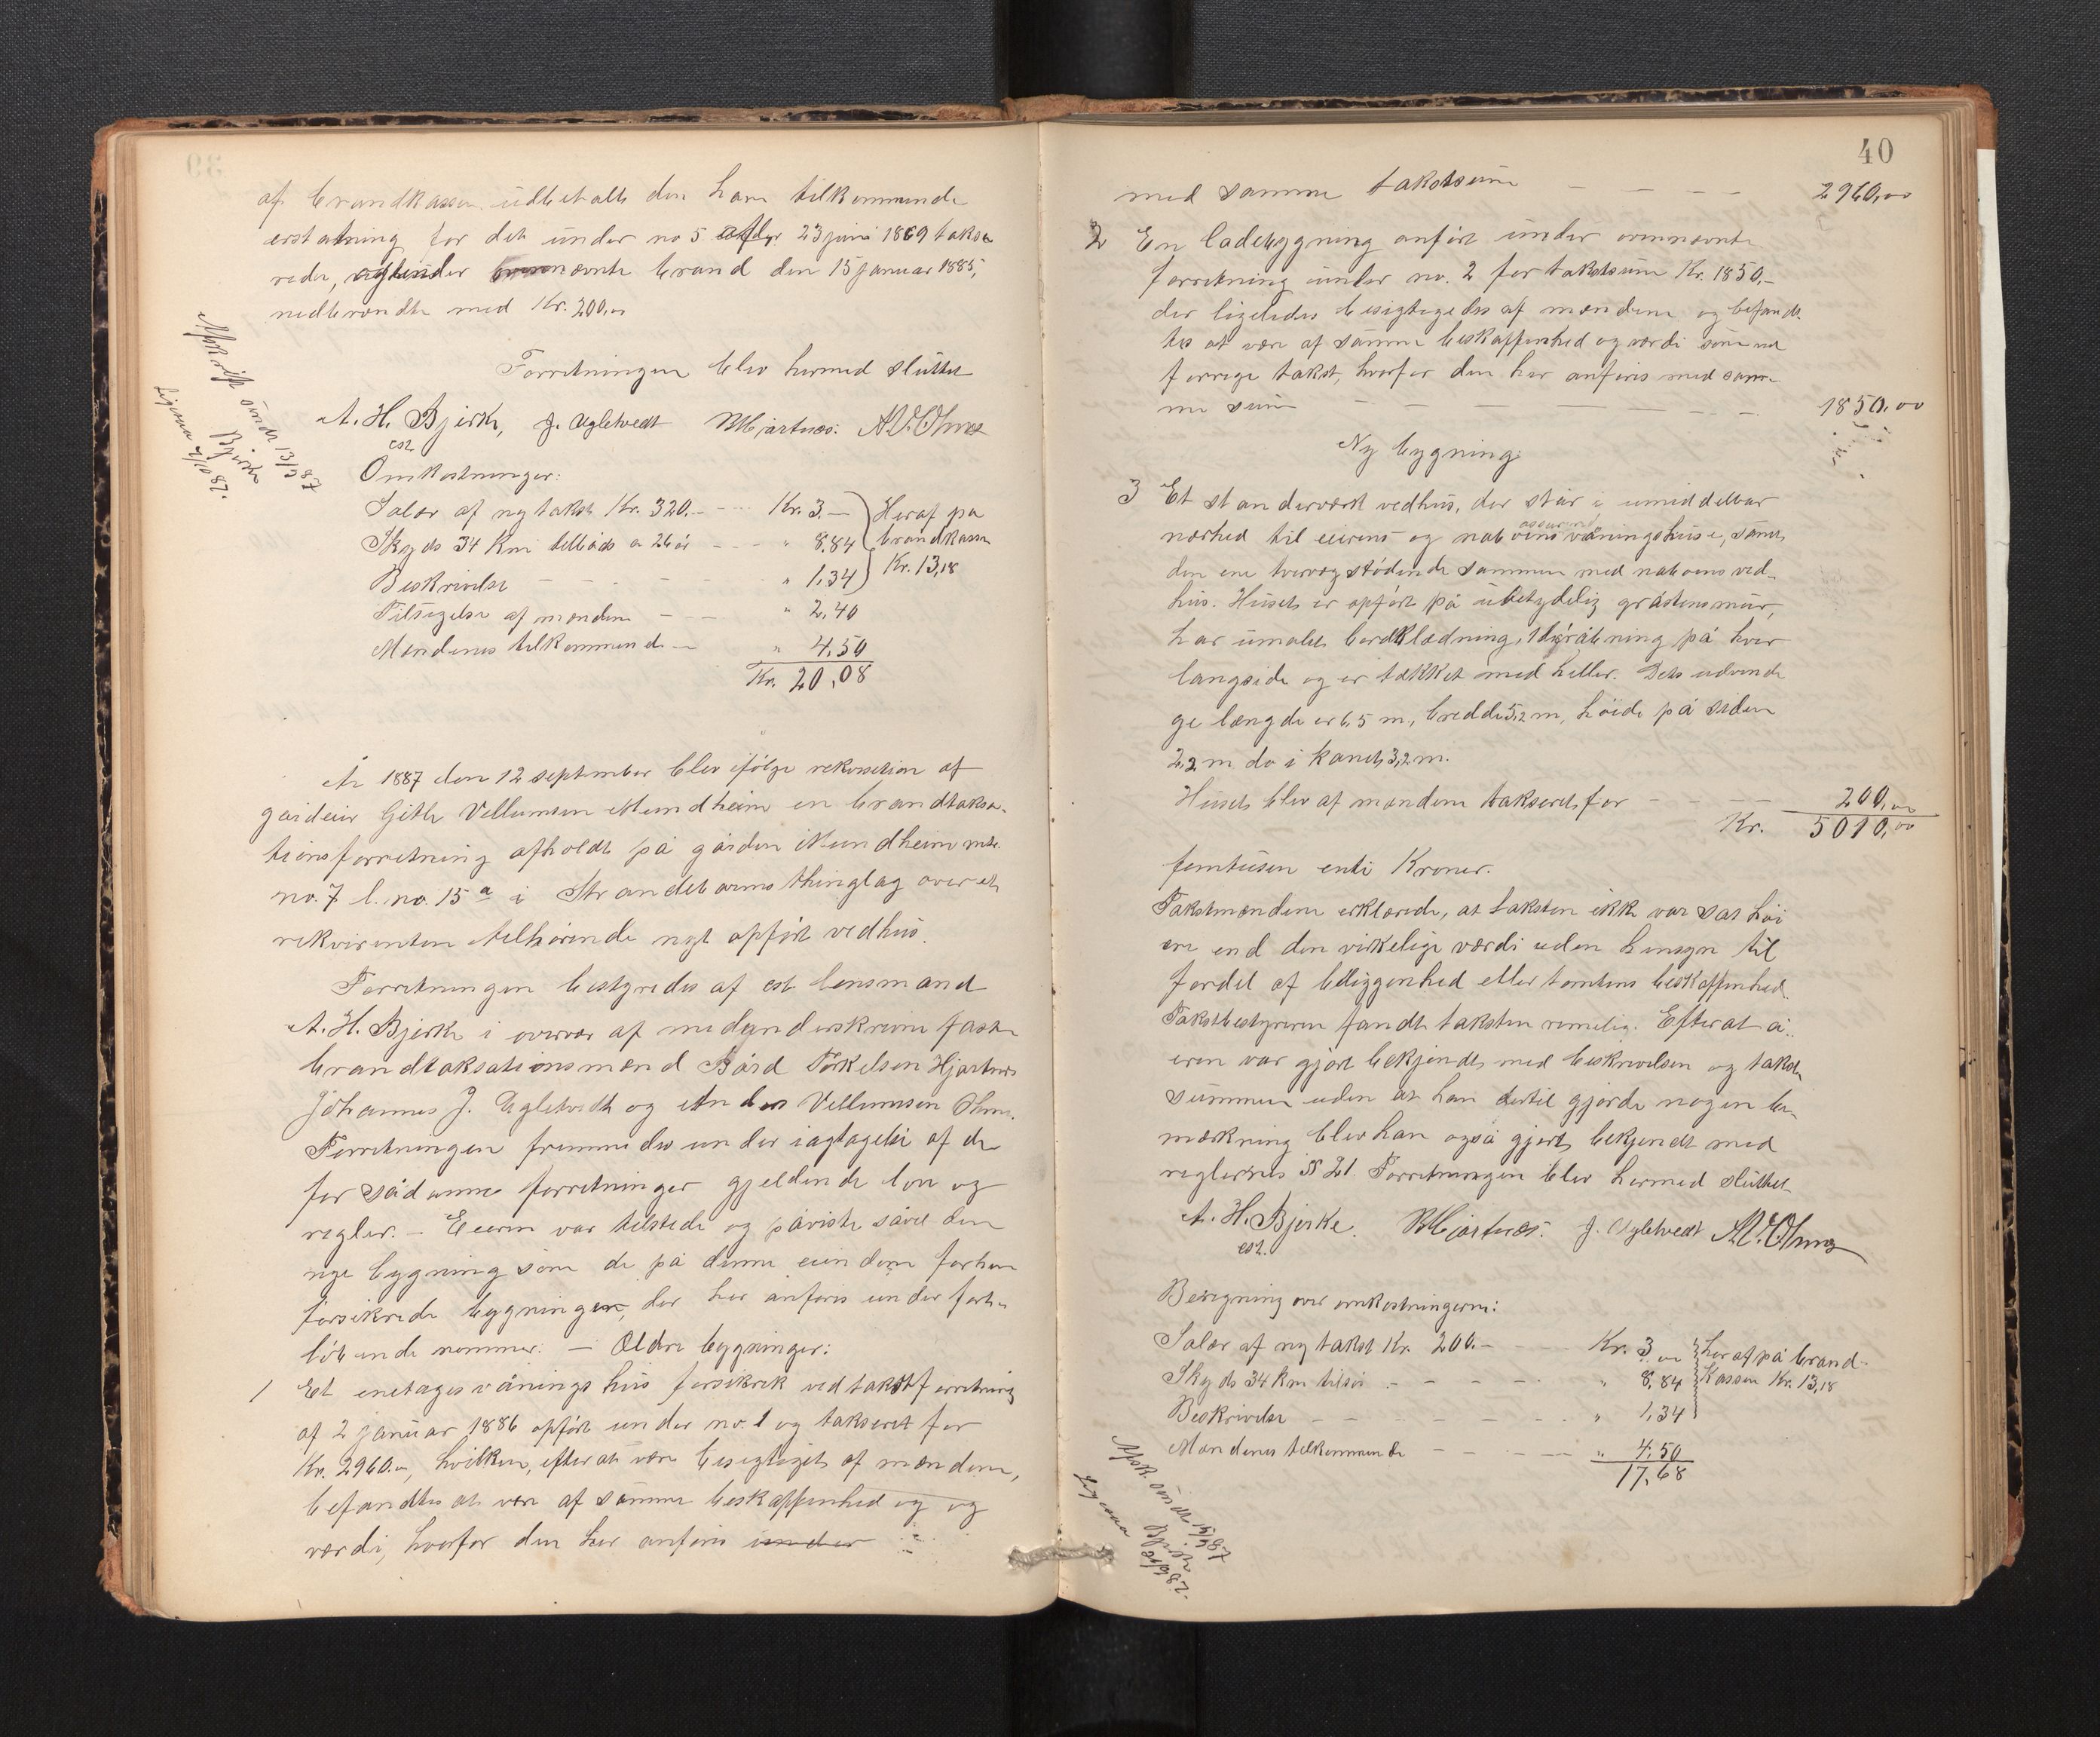 af brandkassen udbetalt den ham tilkommende
erstatning for det under no 5 23 juni 1869 takse
rede, under brand den 15 januar 1885,
nedbrændte med Kr. 200,00
Forretningen blev hermed sluttet
A. H. Bjerke, J. Ugletvedt BHjartnæs. AV.Ohnes
cst.
Afskrift sendt 13/9 87
Bjerke
Ligesaa 2/10 87.
Omkostninger:
Salær af ny takst Kr. 320.- Kr. 3.- Heraf på
Skyds 34 km tilbåds a 26 ør " 8,84 brandkassen
Beskrivelse " 1,34 Kr. 13,18
Tilsigelse af mændene " 2,40
Mændenes tilkommende " 4,50
Kr. 20,08
År 1887 den 12 september blev ifölge rekvisition af
gårdeier Gitle Vellumsen Mundheim en brandtaksa-
tionsforretning afholdt på gården Mundheim mtr.
no. 7 l. no. 15 a i Strandebarms thinglag over et
rekvirenten tilhörende nyt opfört vedhus.
Forretningen bestyredes af cst. lensmand
A. H. Bjerke i overvær af medunderskrevne faste
brandtaksationsmænd Bård Torkelsen Hjartnes
Johannes J. Ugletvedt og Anders Vellumsen Ohnes.
Forretningen fremmedes under iagtagelse af de
for sådanne forretninger gjeldende love og
regler. - Eieren var tilstede og påviste såvel den
nye bygning som de på denne eiendom forhen
forsikrede bygninger, der her anföres under fort-
löbende nommer. - Ældre bygninger:
1 Et enetages våningshus forsikret ved takstforretning
af 2 januar 1886 opfört under no. 1 og takseret for
Kr. 2960.00, hvilken, efterat være besigtiget af mændene,
befandtes at være af samme beskaffenhed og og
værdi, hvorfor den her anföres under
40
med samme takstsum 2960,00
2 En ladebygning anfört under ovennævnte
forretning under no. 2 for takstsum Kr. 1850,-
der ligeledes besigtigedes af mændene og befand-
tes at være af samme beskaffenhed og værdi som ved
forrige takst, hvorfor den her anföres med sam-
me sum 1850,00
Ny bygning:
3 Et standerværk vedhus, der står i umiddelbar
nærhed til eierens og naboens våningshuse, samt
den ene tværvæg stödende sammen med naboens ved-
hus. Huset er opfört på ubetydelig gråstensmur,
har umalet bordklædning, på hver
langside og er tækket med heller. Dets udvendi
ge længde er 6,5 m, bredde 5,2 m, höide på siden
2,2 m do i kanet 3,2 m.
Huset blev af mændene takseret for 200,00
Kr. 5010,00
femtusen enti Kroner.
Takstmændene erklærede, at taksten ikke var sat höi
ere end den virkelige værdi uden hensyn til
fordel af beliggenhed eller tomtens beskaffenhed.
Takstbestyreren fandt taksten rimelig. Efterat ei-
eren var gjort bekjendt med beskrivelsen og takst
summen uden at han dertil gjorde nogen be-
mærkning blev han også gjort bekjendt med
reglernes § 21. Forretningen blev hermed sluttet
A. H. Bjerke. BHjartnæs. J. Ugletvedt AV.Ohnes
cst.
Beregning over omkostningerne:
Salær af ny takst Kr. 200.- Kr. 3,00 heraf på brand-
Skyds 34 km tilsös " 8,84 kassen Kr. 13,18
Beskrivelse " 1,34
Mændenes tilkommende " 4,50
17,68
Afsk. sendt 15/9 87
Bjerke
Ligesaa 2/10 87.